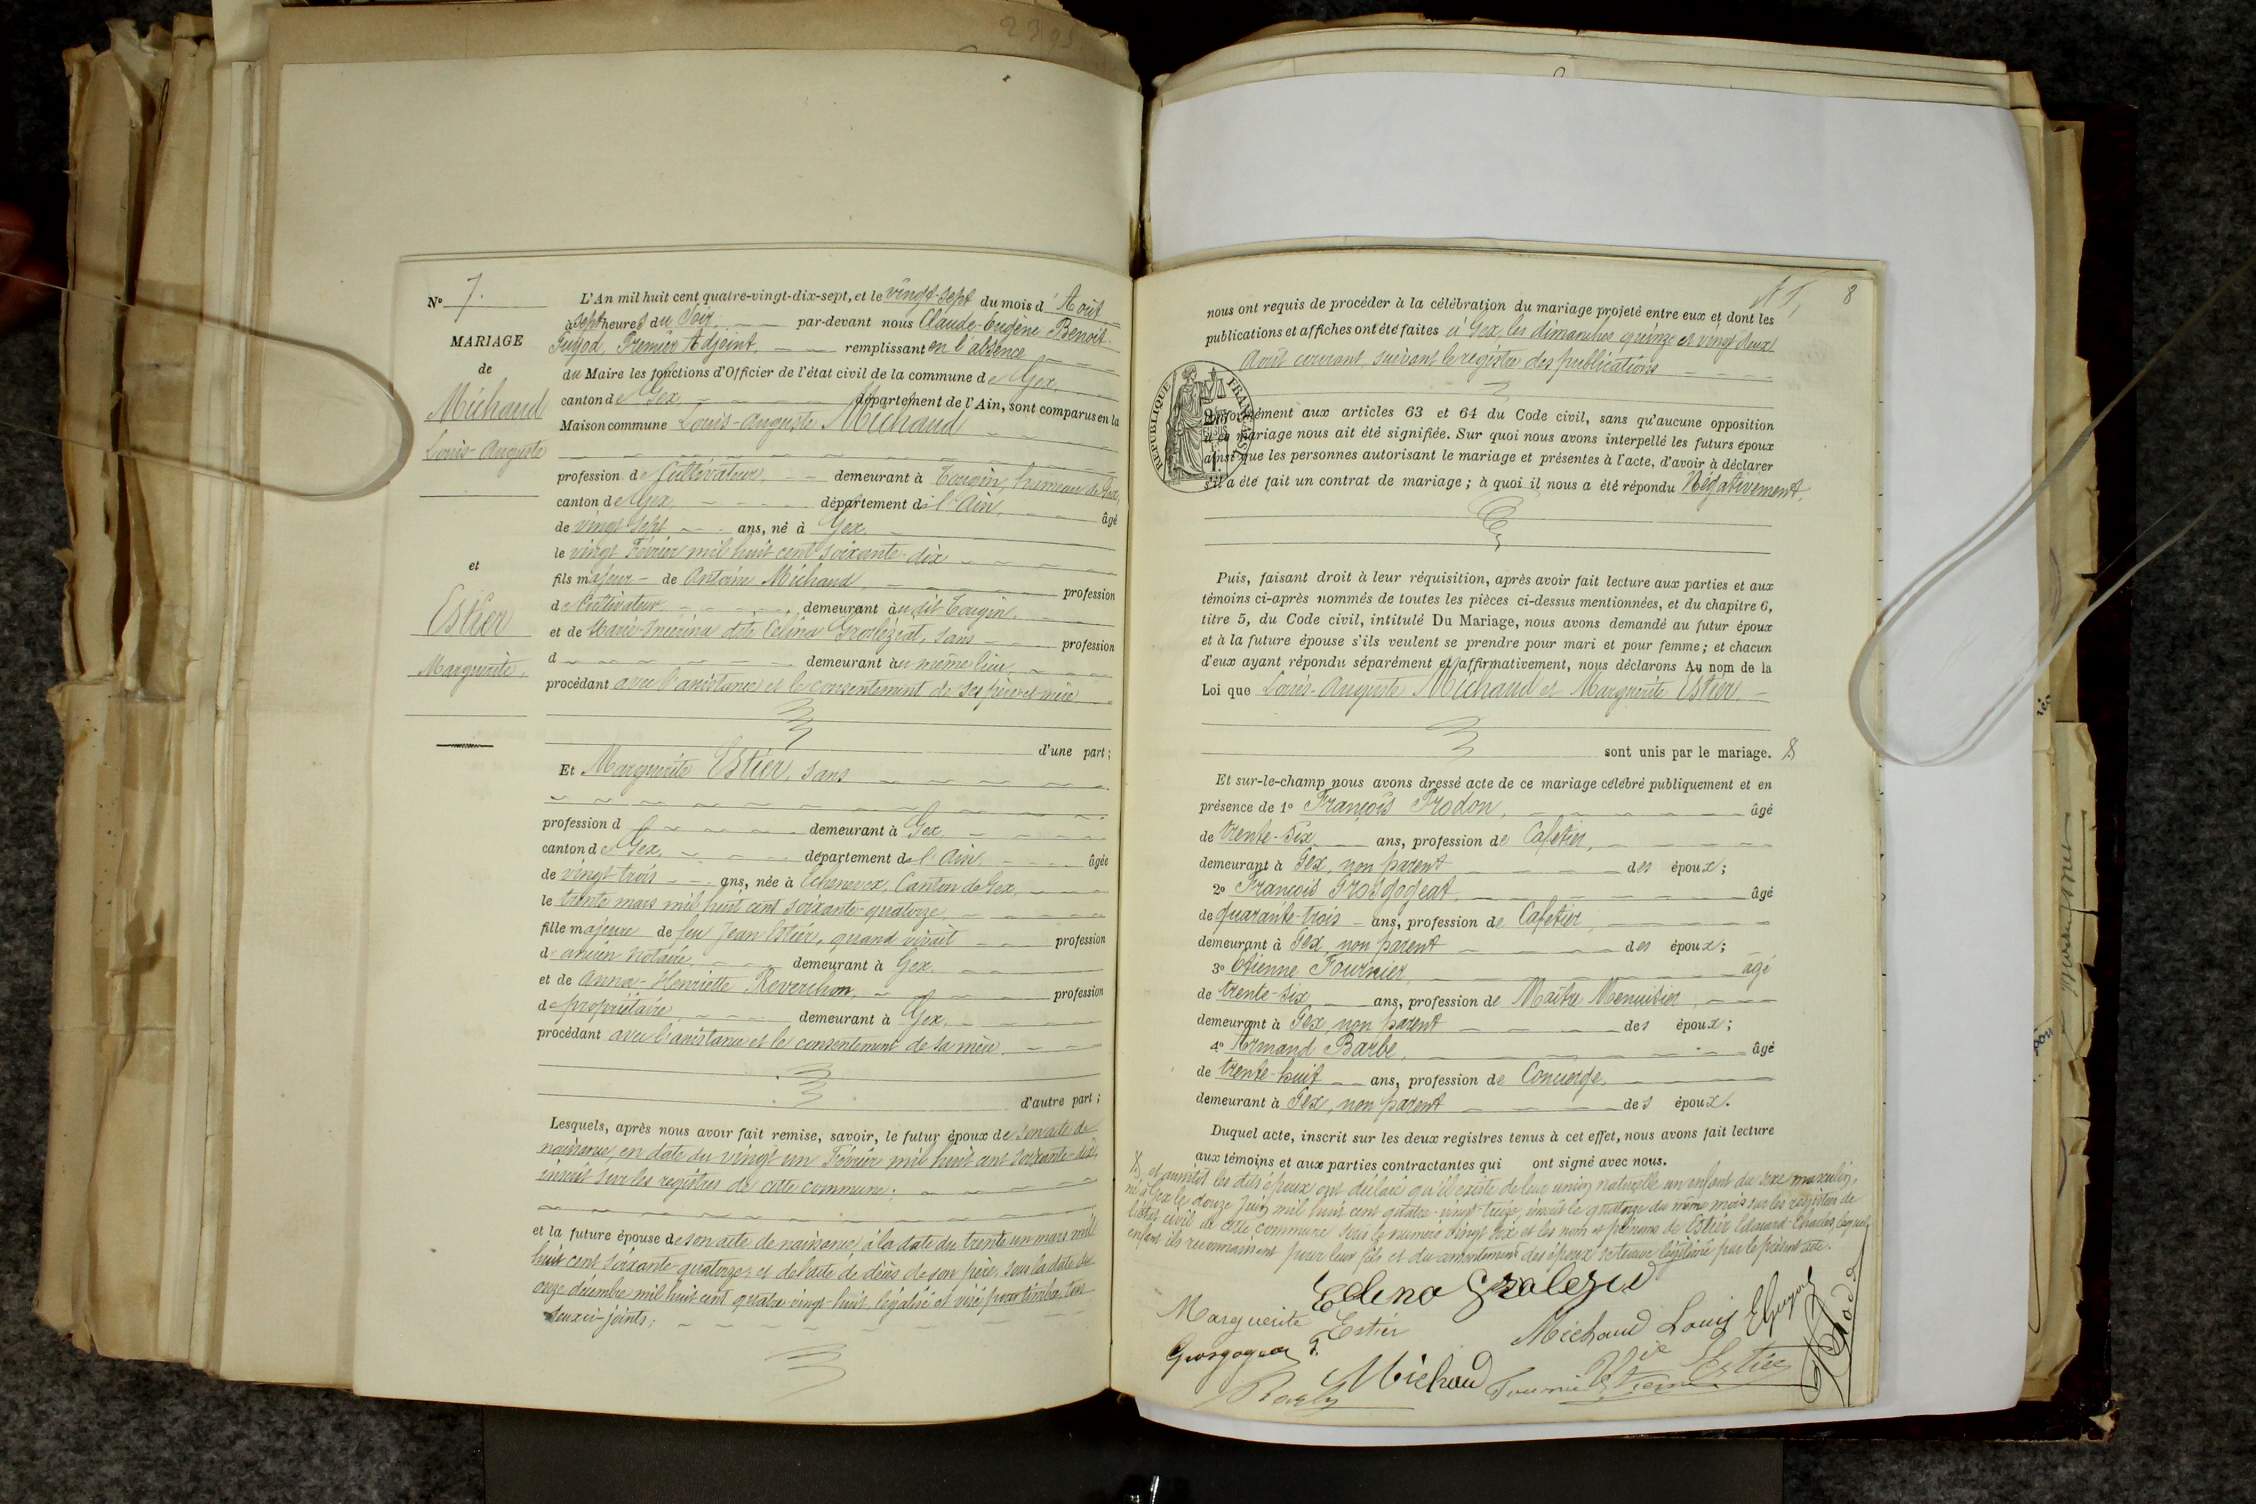 N° 7.
MARIAGE
de
Michaud
Louis-Auguste
et
Estier
Marguerite.
L'An mil huit cent quatre-vingt-dix-sept, et le vingt-sept du mois d'Août
à sept heures du Soir par-devant nous Claude-Eugène Benoit
Premier Adjoint, remplissant en l'absence
du Maire les fonctions d'Officier de l'état civil de la commune de Gex,
canton de Gex département de l'Ain, sont comparus en la
Maison commune Louis-Auguste Michaud
profession de Cultivateur, demeurant à Tougin, hameau de Gex,
canton de Gex, département de l'Ain, âgé
de vingt sept ans, né à Gex
le vingt Février mil huit cent soixante-dix
fils majeur de Antoine Michaud, profession
de Cultivateur demeurant au dit Tougin.
et de Marie dite Célina sans profession
d demeurant au même lieu
procédant avec l'assistance et le consentement de ses père et mère
d'une part;
Et Marguerite Estier, sans
profession d demeurant à Gex,
canton de Gex, département de l'Ain, âgée
de vingt-trois ans, née à Echenevex, Canton de Gex,
le trente mars mil huit cent soixante-quatorze,
fille majeure de feu Jean Estier, quand vivait profession
d'ancien notaire, demeurant à Gex
et de Anna-Henriette Reverchon, profession
de propriétaire, demeurant à Gex,
procédant avec l'assistance et le consentement de sa mère.
d'autre part;
Lesquels, après nous avoir fait remise, savoir, le futur époux de son acte de
naissance en date du vingt un Février mil huit cent soixante-dix,
inscrit sur les registres de cette commune;
et la future épouse de son acte de naissance, à la date du trente un mars mil
huit cent soixante-quatorze; et de l'acte de décès de son père, sous la date du
onze décembre mil huit cent quatre vingt-huit, légalisé et visé pour timbre, tous
deux ci-joints;
8
nous ont requis de procéder à la célébration du mariage projeté entre eux et dont les
publications et affiches ont été faites à Gex, les dimanches quinze et vingt deux
Août courant, suivant le registre des publications
RÉPUBLIQUE FRANÇAISE
conformément aux articles 63 et 64 du Code civil, sans qu'aucune opposition
à ce mariage nous ait été signifiée. Sur quoi nous avons interpellé les futurs époux
ainsi que les personnes autorisant le mariage et présentes à l'acte, d'avoir à déclarer
s'il a été fait un contrat de mariage; à quoi il nous a été répondu Négativement.
Puis, faisant droit à leur réquisition, après avoir fait lecture aux parties et aux
témoins ci-après nommés de toutes les pièces ci-dessus mentionnées, et du chapitre 6,
titre 5, du Code civil, intitulé Du Mariage, nous avons demandé au futur époux
et à la future épouse s'ils veulent se prendre pour mari et pour femme; et chacun
d'eux ayant répondu séparément et affirmativement, nous déclarons Au nom de la
Loi que Louis-Auguste Michaud et Marguerite Estier
sont unis par le mariage.
Et sur-le-champ nous avons dressé acte de ce mariage célébré publiquement et en
présence de 1° François Prodon, âgé
de trente-six ans, profession de Cafetier,
demeurant à Gex, non parent des époux;
2° François Grosgogeat âgé
de quarante-trois ans, profession de Cafetier,
demeurant à Gex, non parent des époux;
3° Etienne Fournier, âgé
de trente-six ans, profession de Maître Menuisier,
demeurant à Gex, non parent des époux;
4° Armand Barbe, âgé
de trente-huit ans, profession de Concierge,
demeurant à Gex, non parent des époux.
Duquel acte, inscrit sur les deux registres tenus à cet effet, nous avons fait lecture
aux témoins et aux parties contractantes qui ont signé avec nous.
et aussitôt les dits époux ont déclaré qu'il existe de leur union naturelle un enfant du sexe masculin,
né à Gex le douze Juin mil huit cent quatre-vingt-treize, inscrit le quatorze du même mois sur les registres de
l'état civil de cette commune sous le numéro vingt six et les nom et prénoms de Estier Edouard-Charles, lequel
enfant ils reconnaissent pour leur fils et du consentement des époux demeure légitimé par le présent acte.
Marguerite Estier
Michaud Louis
Michaud
Estier